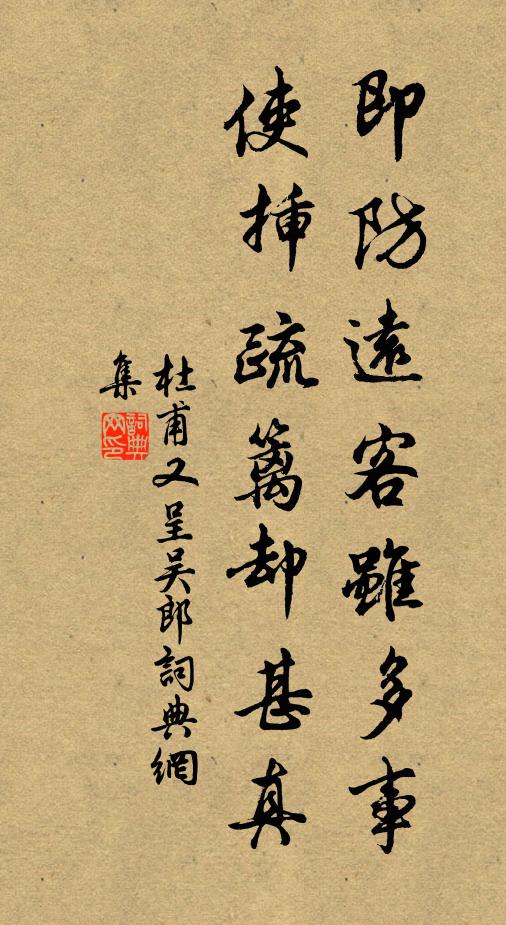 即防遠客雖多事
使插疏籬卻甚真
杜甫又呈吳郎詞典網
集
詞典
网印